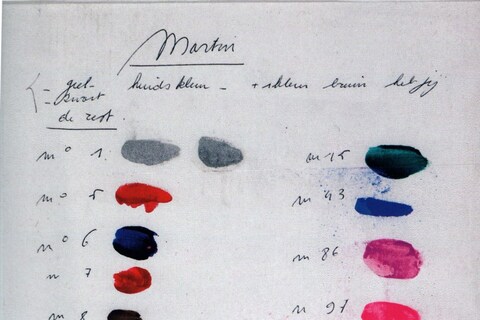 Martin
geel- huidskleur - + kleur bruin
- zwart
de rest.
n° 1.
n° 5
n° 6
n 7
n 8
n 15
n 43
n 86
n 97